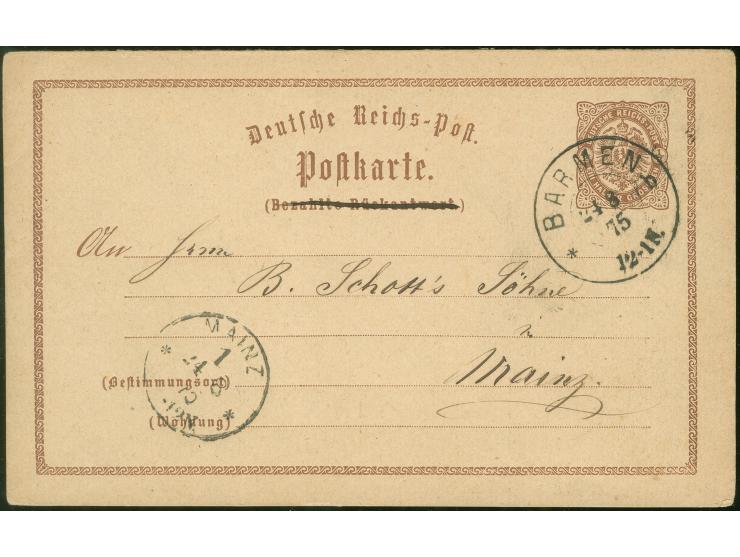 Deutsche Reichs-Post.
Postkarte.
(Bezahlte Rückantwort.)
BARMEN b
24 8
75
12-1N.
An Herrn
B. Schott's Söhne
Mainz.
MAINZ
1
24 8
75
(Bestimmungsort)
(Wohnung)